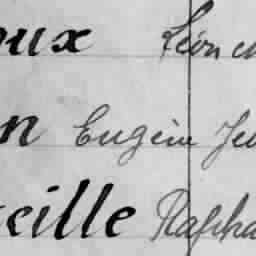 oux Léon
n Eugène Je
eille Rapha